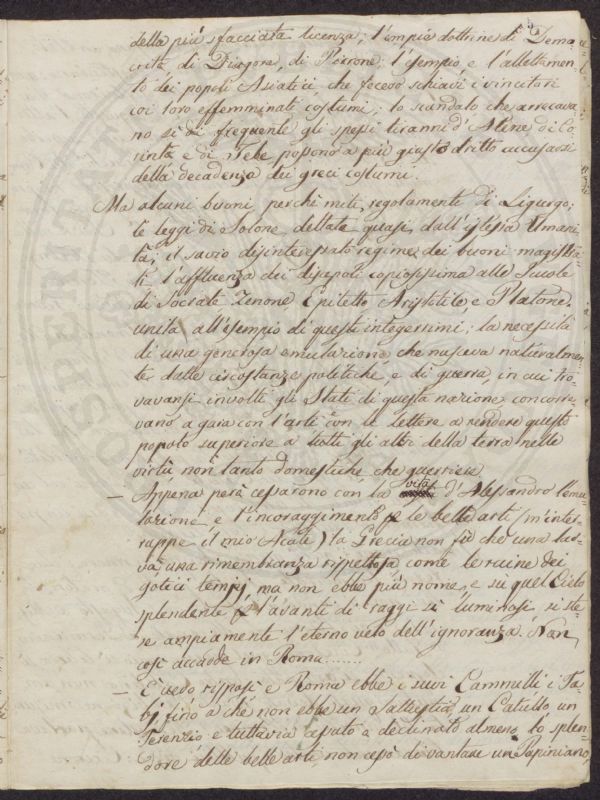 della più sfacciata licenza, l'empie dottrine di Demo
crito di Diagora, di Pirrone; l'esempio e l'allettamen
to dei popoli Asiatici, che fecero schiavi i vincitori
coi loro effemminati costumi; lo scandalo che arrecava
no sì di frequente gli spessi tiranni d'Atene di Co
rinto e di Tebe possono a più giusto dritto accusarsi
della decadenza dei greci costumi.
Ma alcuni buoni perchè miti regolamenti di Ligurgo;
le leggi di Solone dettate quasi dall'istessa Umani
tà; il savio disinteressato regime dei buoni magistra
ti l'affluenza dei discepoli copiosissima alle Scuole
di Socrate Zenone, Epitetto Aristotile, e Platone
unita all'esempio di questi integerrimi; la necessità
di una generosa emulazione, che nasceva naturalmen
te dalle circostanze politiche, e di guerra, in cui tro
vavansi involti gli Stati di questa nazione concorre
vano a gara con l'arti e con le Lettere a rendere questo
popolo superiore a tutti gli altri della terra nelle
virtù non tanto domestiche che guerriere.
— Appena però cessarono con la vita d'Alessandro l'emu
lazione e l'incoraggimento p le belle arti (m'inter
ruppe il mio Acate) la Grecia non fù che una lar
va, una rimembranza rispettosa come le ruine dei
gotici tempj, ma non ebbe più nome, e su quel Cielo
splendente p l'avanti di raggi sì luminosi si ste
se ampiamente l'eterno velo dell'ignoranza. Non
così accadde in Roma.......
— È vero risposi e Roma ebbe i suoi Cammilli i Fa
bj fino a che non ebbe un Sallustio, un Catullo un
Terenzio e tuttavia caduto o declinato almeno lo splen
dore delle belle arti non cessò di vantare un Papiniano,